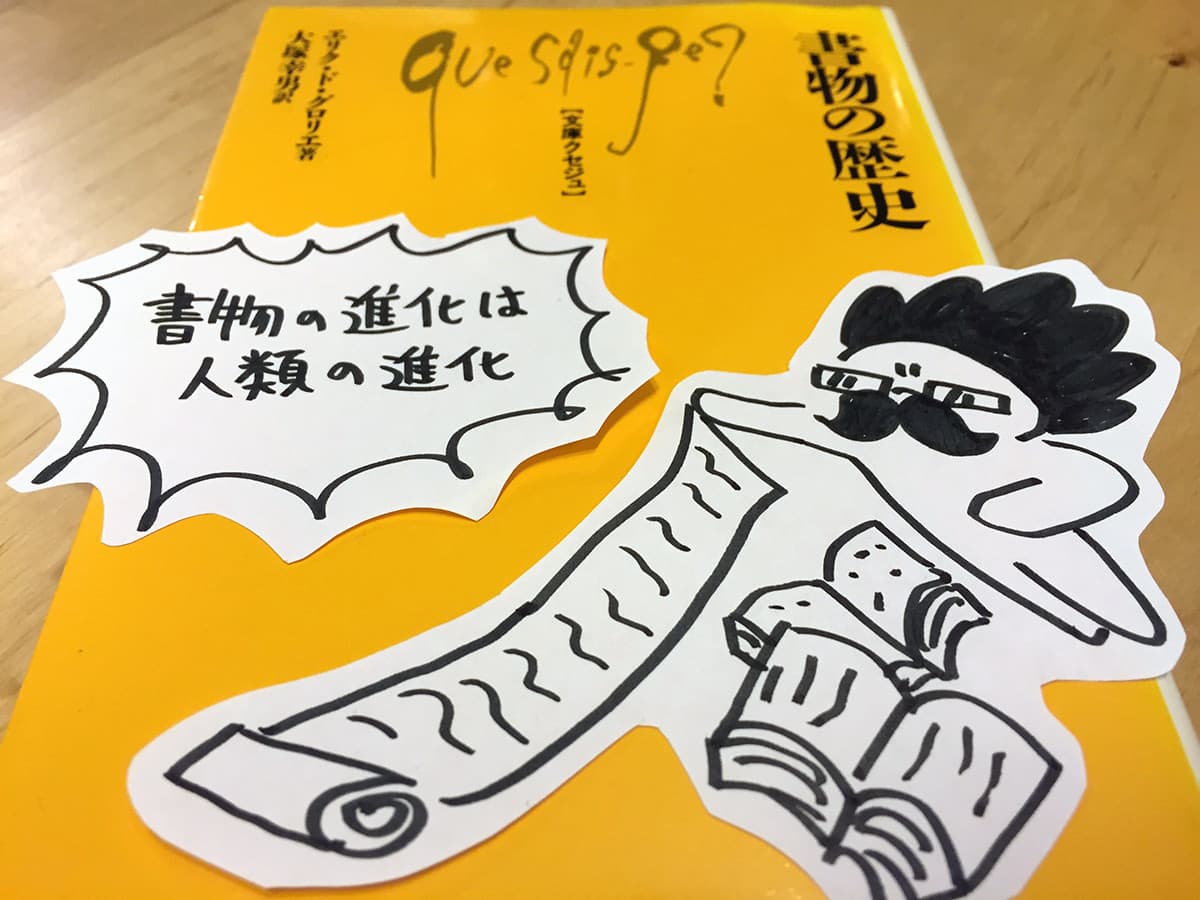 書物の歴史
que sais-je?
[文庫クセジュ]
エリク・ド・グロリエ著
大塚幸男訳
書物の進化は
人類の進化